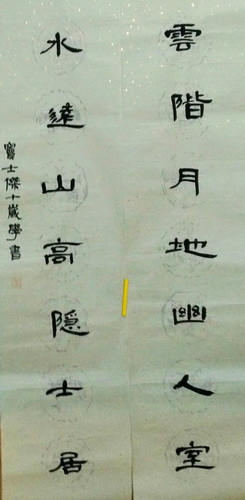 雲階月地幽人室
水達山高隱士居
竇士傑十歲學書